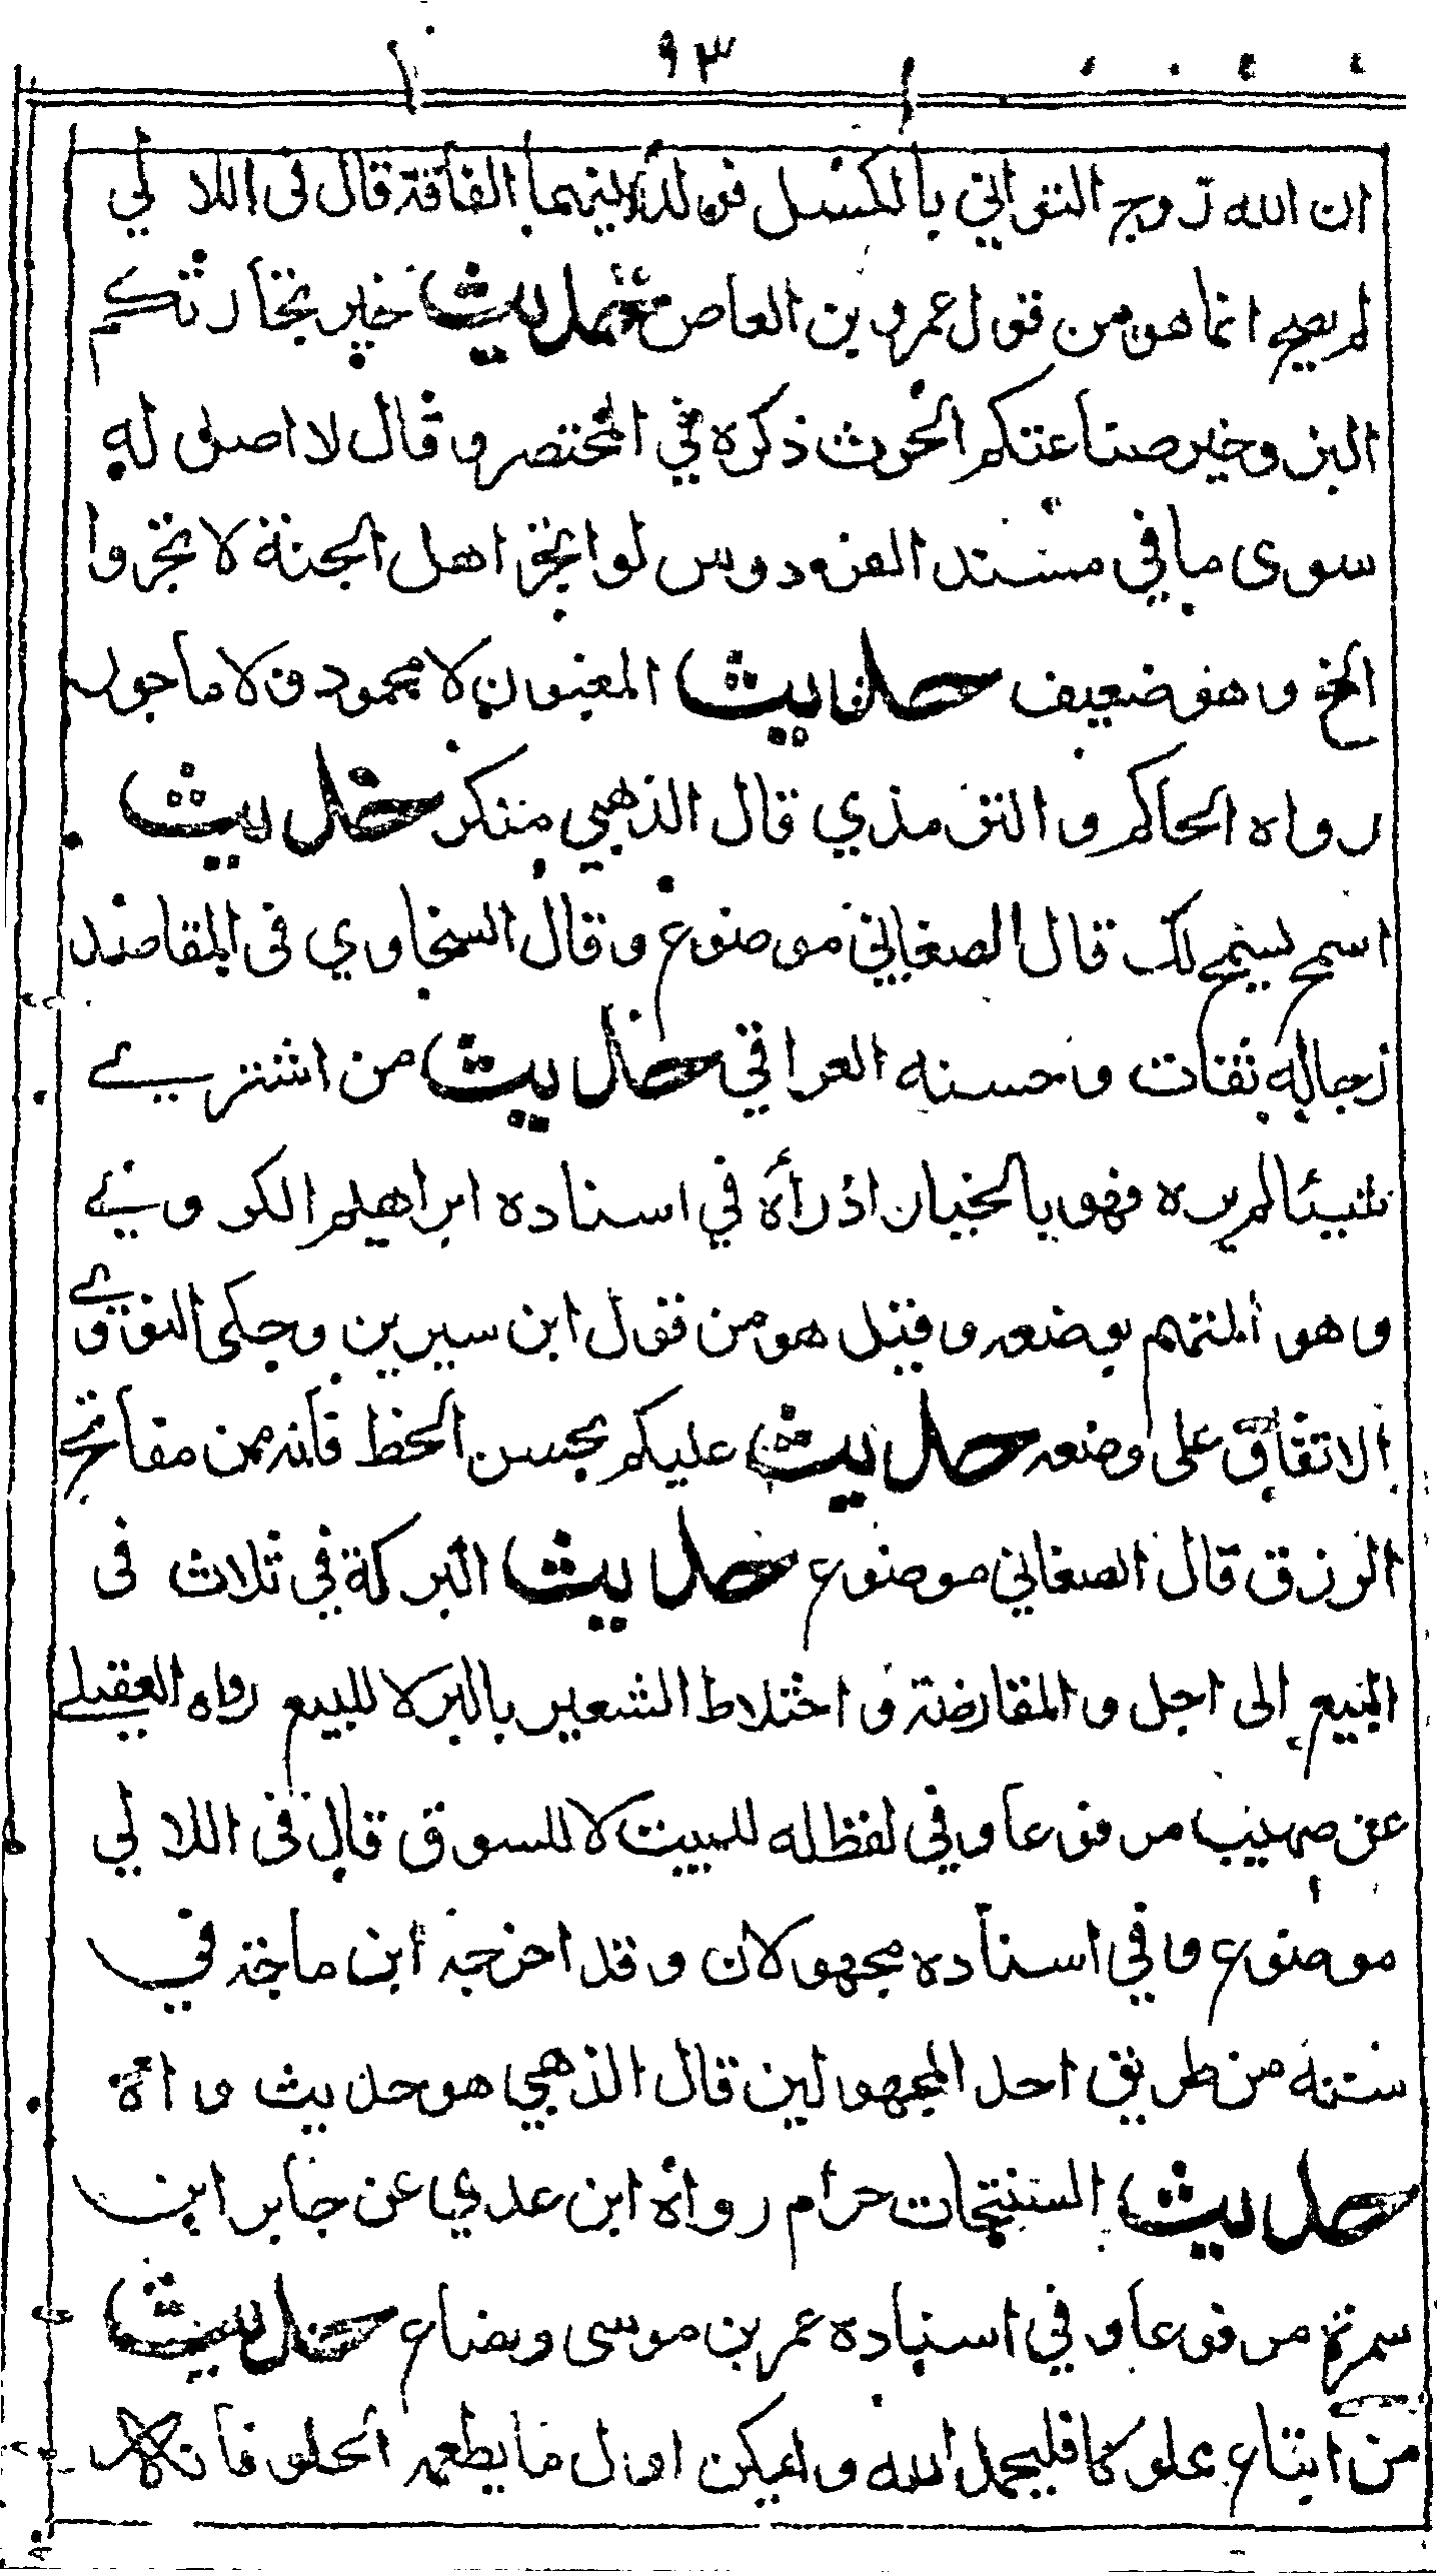 ٩٣
ان الله زوج التواني بالكسل فولد بينهما الفاقة قال فى اللالي
لم يصح انما هو من قول عمرو بن العاص حديث خير تجارتكم
البز وخير صناعتكم الخرز ذكره في المختصر وقال لا اصل له
سوى ما في مسند الفردوس لو اتجر اهل الجنة لاتجروا
الخ وهو ضعيف حديث المغبون لا محمود ولا ماجور
رواه الحاكم والترمذي قال الذهبي منكر حديث
اسمح يسمح لك قال الصغاني موضوع وقال السخاوي فى المقاصد
رجاله ثقات وحسنه العراقي حديث من اشترے
شيئا لم يره فهو بالخيار اذ راٰه في اسناده ابراهيم الكردے
وهو المتهم بوضعه وقيل هو من قول ابن سيرين وحكى النووے
الاتفاق على وضعه حديث عليكم بحسن الخط فانه من مفاتح
الرزق قال الصغاني موضوع حديث البركة في ثلاث فى
البيع الى اجل والمقارضة واختلاط الشعير بالبر لا للبيع رواه العقيلے
عن صهيب مرفوعا وفي لفظ له للبيت لا للسوق قال فى اللالي
موضوع وفي اسناده مجهولان وقد اخرجه ابن ماجة في
سننه من طريق احد المجهولين قال الذهبي هو حديث واه
حديث السفتجات حرام رواه ابن عدي عن جابر ابن
سمرة مرفوعا وفي اسناده عمر بن موسى وضاع حديث
من ابتاع مملوكا فليحمد الله وليكن اول ما يطعمه الحلو فانه